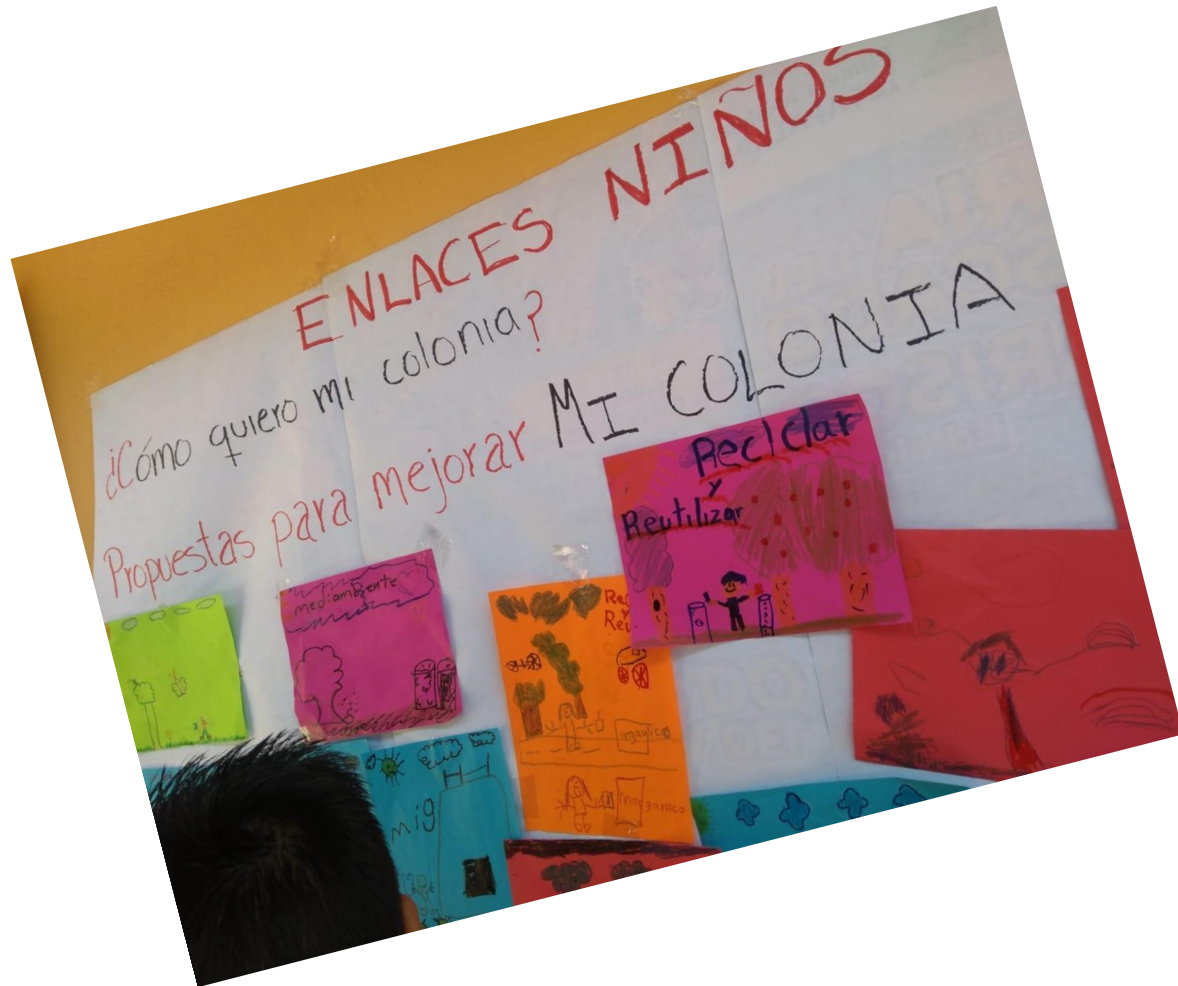 ENLACES NIÑOS
¿Cómo quiero mi colonia?
Propuestas para mejorar MI COLONIA
Reciclar
y
Reutilizar
mediambiente
Re
y
Reu
organico
inorganico
mig